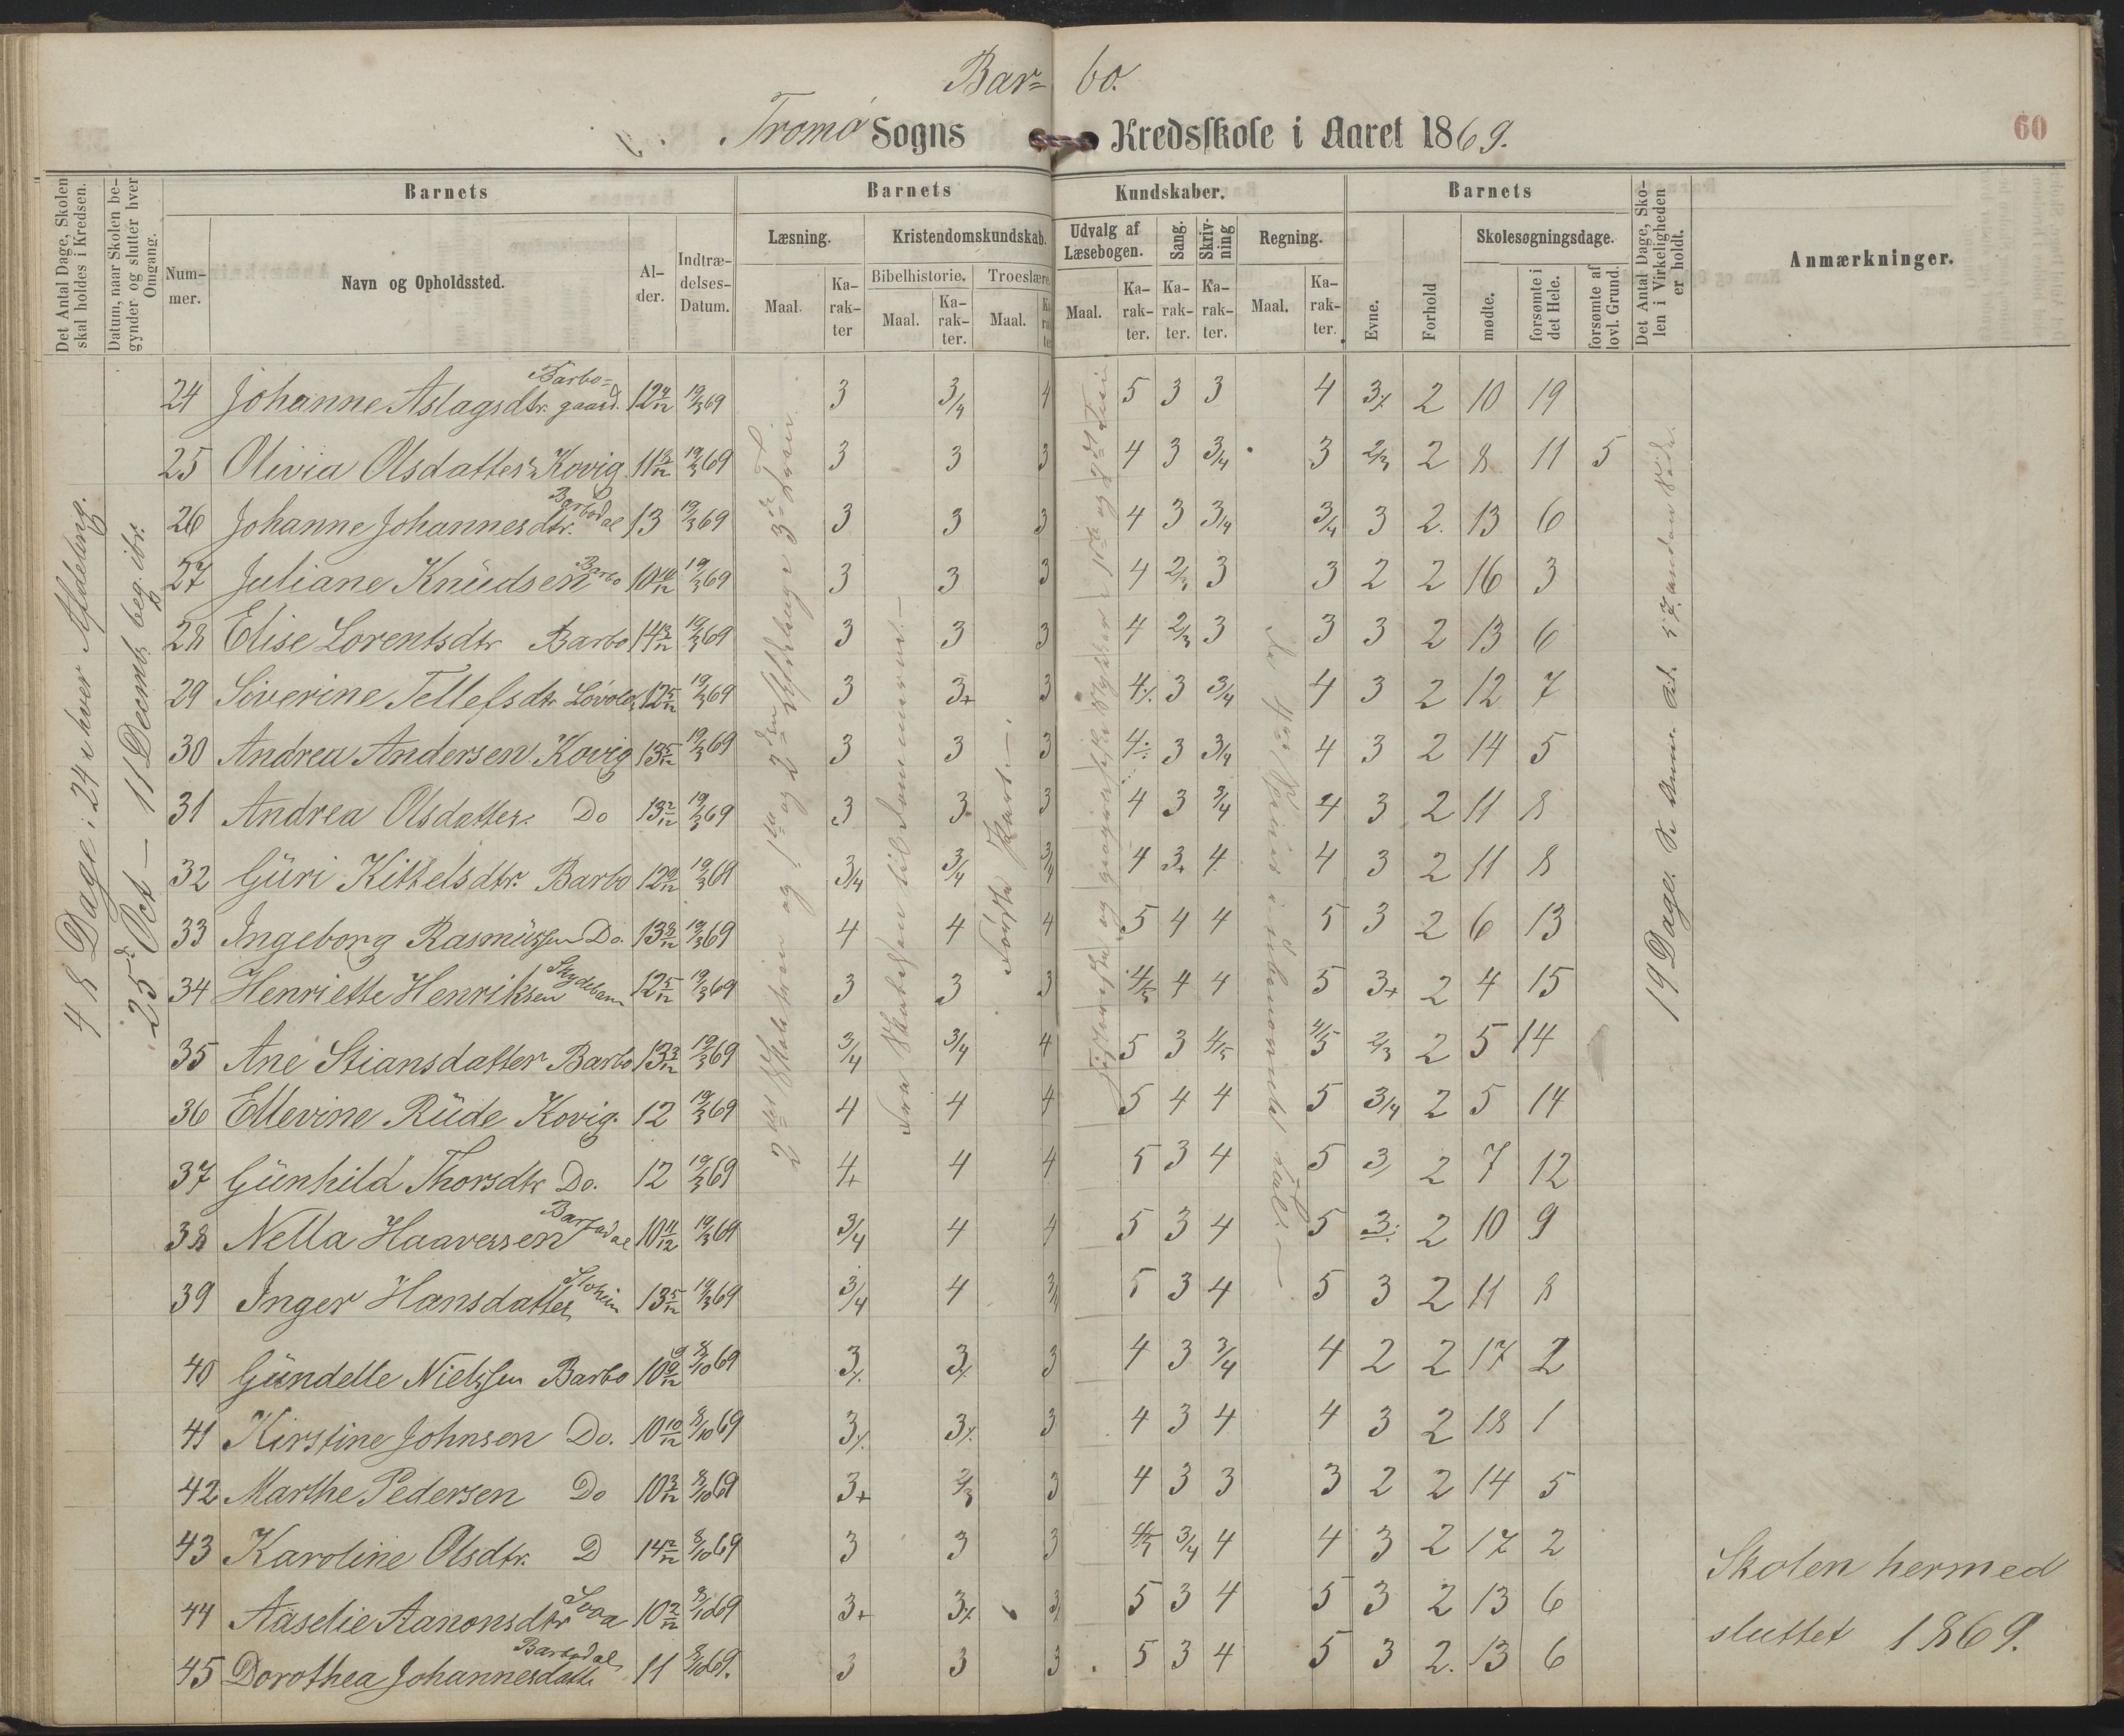 Bar- bo.
Tromø Sogns Kredsskole i Aaret 1869.
60
Det Antal Dage, Skolen skal holdes i Kredsen.
Datum, naar Skolen begynder og slutter hver Omgang.
Barnets
Barnets Kundskaber.
Barnets
Det Antal Dage, Skolen i Virkeligheden er holdt.
Anmærkninger.
Nummer.
Navn og Opholdssted.
Alder.
Indtrædelses-Datum.
Læsning.
Kristendomskundskab.
Udvalg af Læsebogen.
Sang.
Skrivning
Regning.
Evne.
Forhold
Skolesøgningsdage.
Bibelhistorie.
Troeslære
Maal.
Karakter
Maal.
Karakter.
Maal.
Karakter
Maal.
Karakter.
Karakter.
Karakter.
Maal.
Karakter.
mødte.
forsømte i det Hele.
forsømte af lovl. Grund.
48 Dage i 24 e hver Afdeling.
25d Oct — 11 Decemb. beg. ibr.
19 Dage.
Første Part —
24 Johanne Aslagsdtr. Barbogaard. 12 19/3 69 3 3/4 4 5 3 3 4 3% 2 10 19
25 Olivia Olsdatter Kovig 11 19/3 69 3 3 3 4 3 3/4 3 2/3 2 8 11 5
26 Johanne Johannesdtr. Barbodal 13 19/3 69 3 3 3 4 3 3/4 3/4 3 2. 13 6
27 Juliane Knüdsen Barbo 10 19/3 69 3 3 3 4 2/3 3 3 2 2 16 3
28 Elise Lorentsdtr Barbo 14 19/3 69 3 3 3 4 2/3 3 3 3 2 13 6
29 Siverine Tellefsdtr 12 5/12 19/3 69 3 3+ 3 4% 3 3/4 4 3 2 12 7
30 Andrea Andersen Kovig 13 5/12 19/3 69 3 3 3 4% 3 3/4 4 3 2 14 5
31 Andrea Olsdatter. Do 13 2/12 19/3 69 3 3 3 4 3 3/4 4 3 2 11 8
32 Güri Kittelsdtr. Barbo 12 19/3 69 3/4 3/4 3/4 4 3+ 4 4 3 2 11 8
33 Ingeborg Rasmüssen Do. 13 19/3 69 4 4 4 5 4 4 5 3 2 6 13
34 Henriette Henriksen 12 5/12 19/3 69 3 3 3 4/5 4 4 5 3+ 2 4 15
35 Ane Stiansdatter Barbo 13 19/3 69 3/4 3/4 4 5 3 4/5 4/5 2/3 2 5 14
36 Ellevine Rüde Kovig. 12 19/3 69 4 4 4 5 4 4 5 3/4 2 5 14
37 Günhild Thorsdtr Do. 12 19/3 69 4+ 4 4 5 3 4 5 3/ 2 7 12
38 Nella Haaversen Barbodal 10 11/12 19/3 69 3/4 4 4 5 3 4 5 3% 2 10 9
39 Inger Hansdatter 13 5/12 19/3 69 3/4 4 3/4 5 3 4 5 3 2 11 8
40 Gündelle Nielssen Barbo 10 9/12 8/10 69 3% 3% 3 4 3 3/4 4 2 2 17 2
41 Kirstine Johnsen Do. 10 10/12 8/10 69 3% 3% 3 4 3 4 4 3 2 18 1
42 Marthe Pedersen Do 10 3/12 8/10 69 3+ 2/3 3 4 3 3 3 2 2 14 5
43 Karoline Olsdtr. D 14 2/12 8/10 69 3 3 3 4/5 3/4 4 4 3 2 17 2
44 Aaselie Aanonsdtr 10 2/12 8/10 69 3+ 3% 3/ 5 3 4 5 3 2 13 6
45 Dorothea Johannesdatte Barbodal 11 8/10 69. 3 3 3 5 3 4 5 3 2. 13 6
Skolen hermed
sluttet 1869.